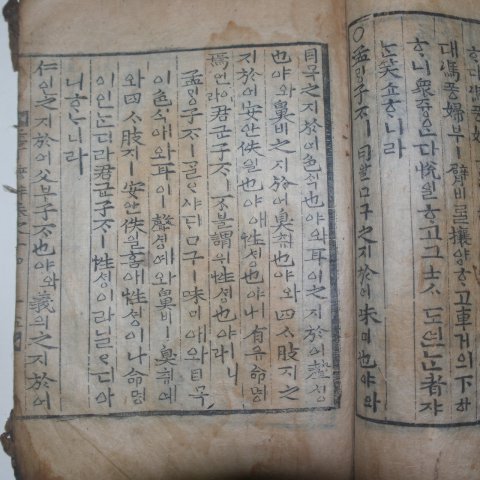 대馮풍婦부ㅣ臂비ᄅᆞᆯ攘양ᄒᆞ고車거의下하
ᄒᆞ니衆즁은다悅열ᄒᆞ고그士ᄉᆞ도연ᄂᆞᆫ者쟈
ᄂᆞᆫ笑쇼ᄒᆞ니라
○孟ᄆᆡᆼ子ᄌᆞㅣ曰왈口구之지於어味미也야와
目목之지於어色ᄉᆡᆨ也야와耳이之지於어聲셩
也야와鼻비之지於어臭ᄎᆔ也야와四ᄉᆞ肢지之
지於어安안佚일也야애性셩也야ㅣ나有유命명
焉언이라君군子ᄌᆞㅣ不블謂위性셩也야ㅣ니라
孟ᄆᆡᆼ子ᄌᆞㅣᄀᆞᆯᄋᆞ샤ᄃᆡ口구ㅣ味미애와目목
이色ᄉᆡᆨ애와耳이ㅣ聲셩에와鼻비ㅣ臭ᄎᆔ예
와四ᄉᆞ肢지ㅣ安안佚일홈애性셩이나命명
이인ᄂᆞᆫ디라君군子ᄌᆞㅣ性셩이라닐ᄋᆞ디아
니ᄒᆞᄂᆞ니라
仁인之지於어父부子ᄌᆞ也야와義의之지於어